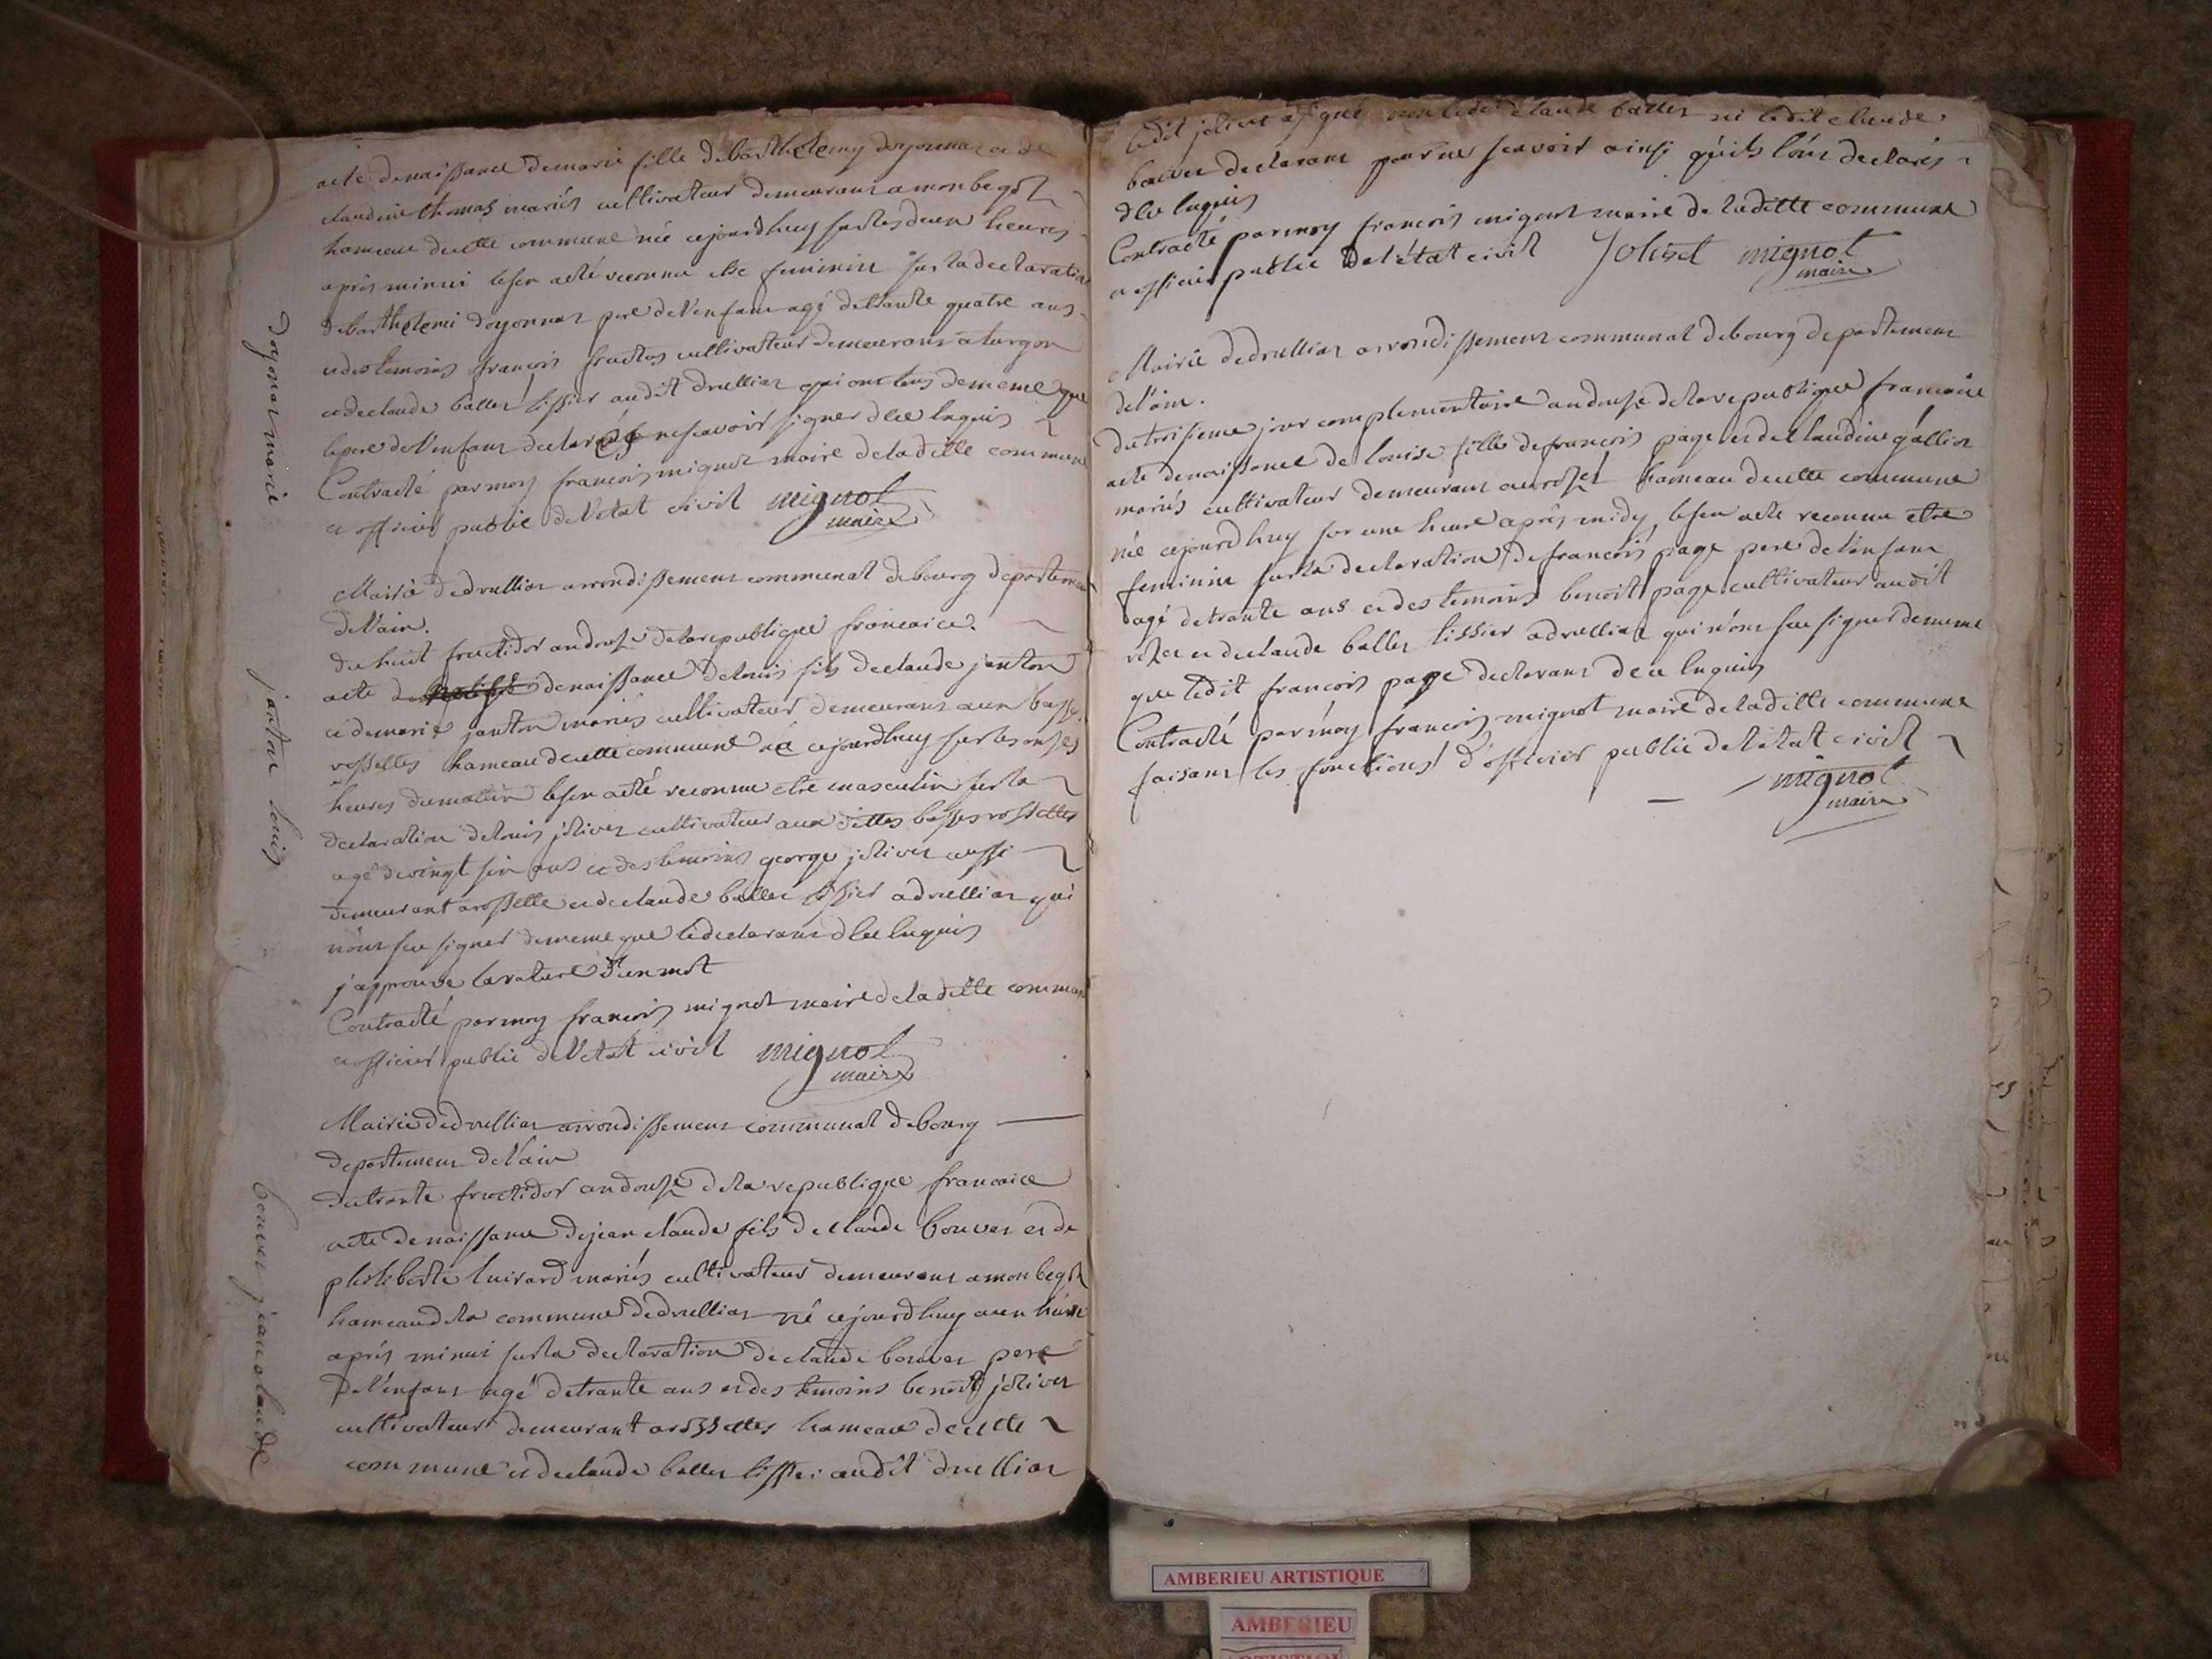 acte denaissance demarie fille debarthelemy doyonnaz et de
claudine thomas mariés cultivateur demeurans amonbegoz
hameau decette commune née cejourdhuy surlesdeux heures
après minui lesexe acté reconnu etre feminin surladeclaration
debarthelemi doyonnaz pere delenfant agé de quatre ans
etdestemoins françois cultivateur demeurans
etdeclaude ballet tissier audit drullias qui ont tous dememe que
lepere delenfant declaré nesçavoir signer dlee
Contracté parmoy francois mignot maire deladitte commune
et officier public deletat civil mignot
maire
doyonaz marie
Mairie dedrullias arrondissement communal debourg departement
delain.
du huit fructidor andouse delarepublique francaice.
acte de denaissance delouis fils declaude janton
et demarie janton mariés cultivateur demeurans aux basses
vosselles hameau decette commune né cejourdhuy surlesonses
heures dumatin lesexe acté reconnu etre masculin surla
declaration delouis jolivet cultivateur aux dittes basses rosselles
agé devingt six ans et destemoins george jolivet aussi
demeurant arosselle et declaude ballet tissier adrullias qui
nont seu signer dememe que ledeclarans dlee
japprouve larature d'unmot
Contracté parmoy francois mignot maire deladitte commune
et officier public deletat civil mignot
maire
janton louis
Mairie dedrullias arrondissement communal debourg
departement delain
dutrante fructidor andouse dela republique francaice
acte denaissance dejean claude fils declaude bouvet et de
philiberte luirard mariés cultivateur demeurans amonbegoz
hameaudela commune dedrullias né cejourdhuy aune heure
après minui surla declaration declaude bouvet pere
delenfant agé detrante ans et des temoins benoit jolivet
cultivateur demeurant arossettes hameau decette
commune et declaude ballet tissier audit drullias
bouvet jean claude
ledit jolivet a signé non ledit claude ballet ni ledit claude
bouvet declarant pour ne scavoir ainsi quils l'ont declarés
dlee
Contracté parmoy francois mignot maire de laditte commune
et officier public deletat civil Jolivet mignot
maire
Mairie dedrullias arrondissement communal debourg departement
delain.
dutroisieme jour complementaire andouse delarepublique francaice
acte denaissance de louise fille defrancois page et declaudine gallion
mariés cultivateur demeurans hameau decette commune
née cejourdhuy sur une heure après midy, lesexe acté reconnu etre
feminin surla declaration defrancois page pere delenfant
agé detrante ans et destemoins benoit page cultivateur audit
et declaude ballet tissier adrullias quin'ont seu signer dememe
que ledit francois page declarans
Contracté parmoy francois mignot maire deladitte commune
faisant les fonctions d'officier public deletat civil
mignot
maire
AMBERIEU ARTISTIQUE
AMBERIEU
ARTISTIQUE